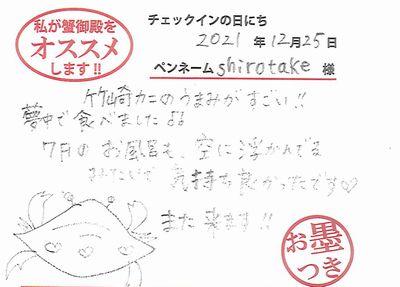 私が蟹御殿を
オススメ
します!!
チェックインの日にち
2021 年 12月 25日
ペンネーム shirotake 様
竹崎カニのうまみがすごい!!
夢中で食べました♪♪
7月のお風呂も、空に浮かんでる
みたいで 気持ち良かったです♡
また来ます!!
お墨つき